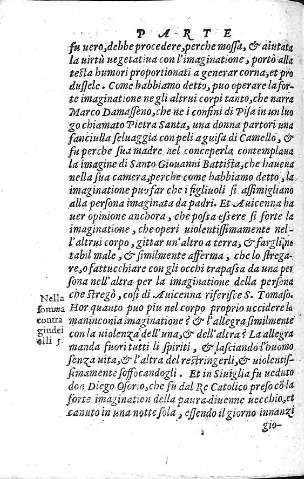 PARTE
fu uero, debbe procedere, perche mossa, & aiutata
la uirtù uegetatiua con l'imaginatione, portò alla
testa humori proportionati a generar corna, et pro
dussele. Come habbiamo detto, puo operare la for-
te imaginatione ne gli altrui corpi tanto, che narra
Marco Damasseno, che ne i confini di Pisa in un luo
go chiamato Pietra Santa, una donna partorì una
fanciulla seluaggia con peli a guisa di Camello, &
fu perche sua madre nel conceperla contemplaua
la imagine di Santo Giouanni Battista, che haueua
nella sua camera, perche come habbiamo detto, la
imaginatione puo far che i figliuoli si assimigliano
alla persona imaginata da padri. Et Auicenna ha
uer opinione anchora, che possa essere sì forte la
imaginatione, che operi uiolentissimamente nel-
l'altrui corpo, gittar un'altro a terra, & fargli no
tabil male, & similmente afferma, che lo strega-
re, o fattucchiare con gli occhi trapassa da una per
sona nell'altra per la imaginatione della persona
che stregò, così di Auicenna riferisce S. Tomaso.
Nella
somma
contra
gindei
Hor quanto può piu nel corpo proprio uccidere la
maninconia imaginatione? & l'allegra similmente
con la uiolenza dell'una, & dell'altra? La allegra
manda fuori tutti li spiriti, & lasciando l'huomo
senza uita, & l'altra del restringerli, & uiolentis-
simamente soffocandogli. Et in Siuiglia fu ueduto
don Diego Osorio, che fu dal Re Catolico preso cō la
forte imagination della paura diuenne uecchio, et
canuto in una notte sola, essendo il giorno innanzi
gio-